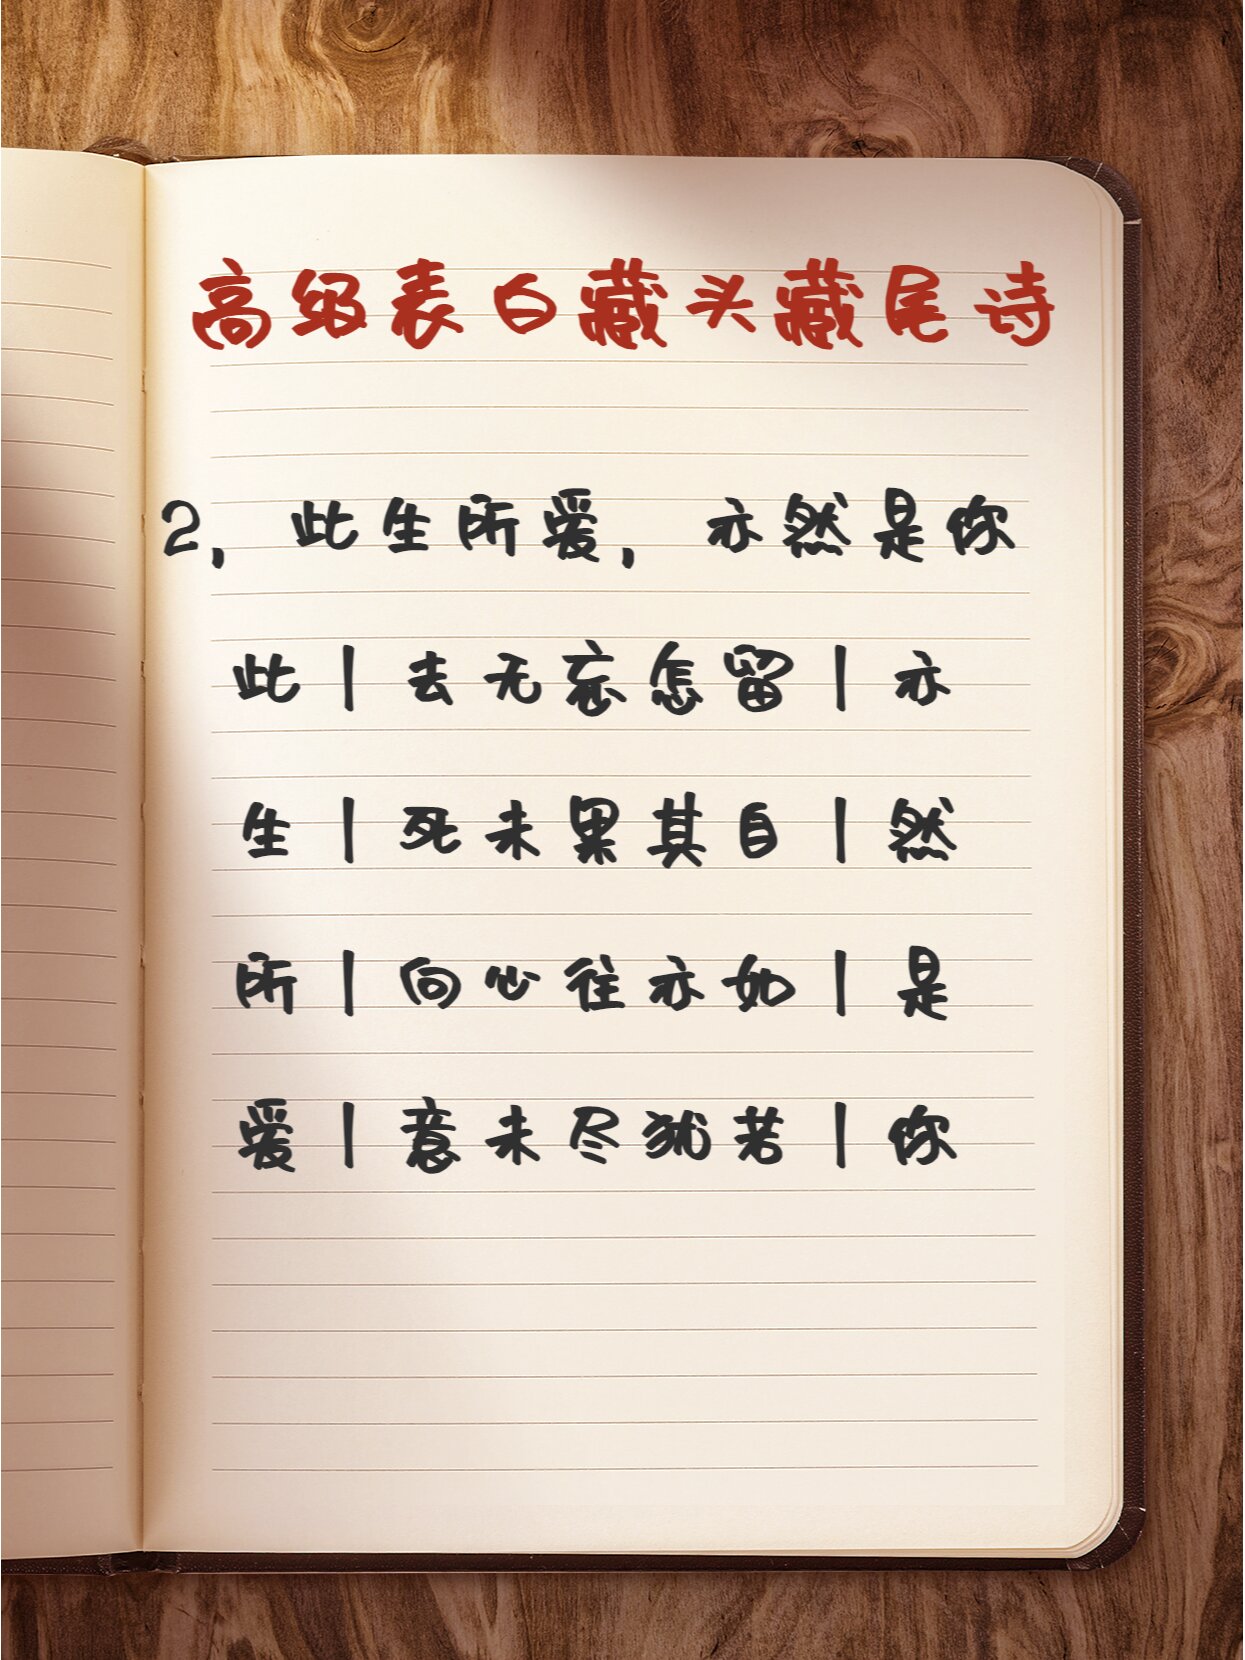 高级表白藏头藏尾诗
2，此生所爱，亦然是你
此丨去无忘怎留丨亦
生丨死未果其自丨然
所丨向心往亦如丨是
爱丨意未尽犹若丨你